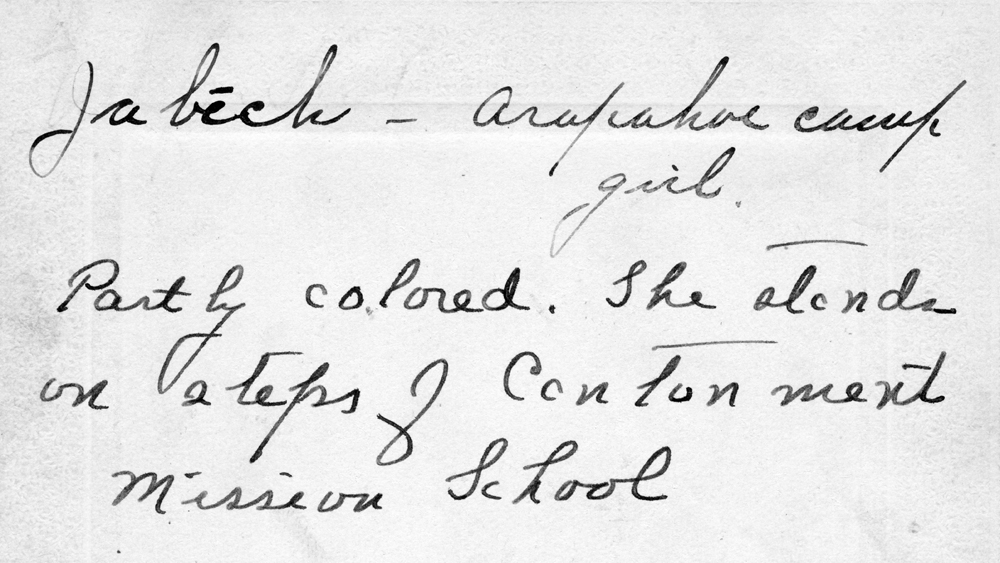 Jabēch - Arapahoe camp
girl.
Partly colored. She stands
on steps of Cantonment
Mission School